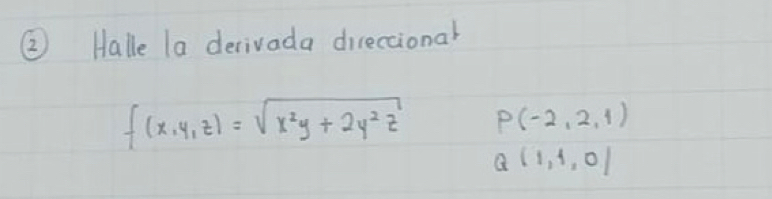 ② Halle la derivada direccional
f(x,y,z) = √x²y + 2y²z P(-2,2,1)
Q(1,1,0)